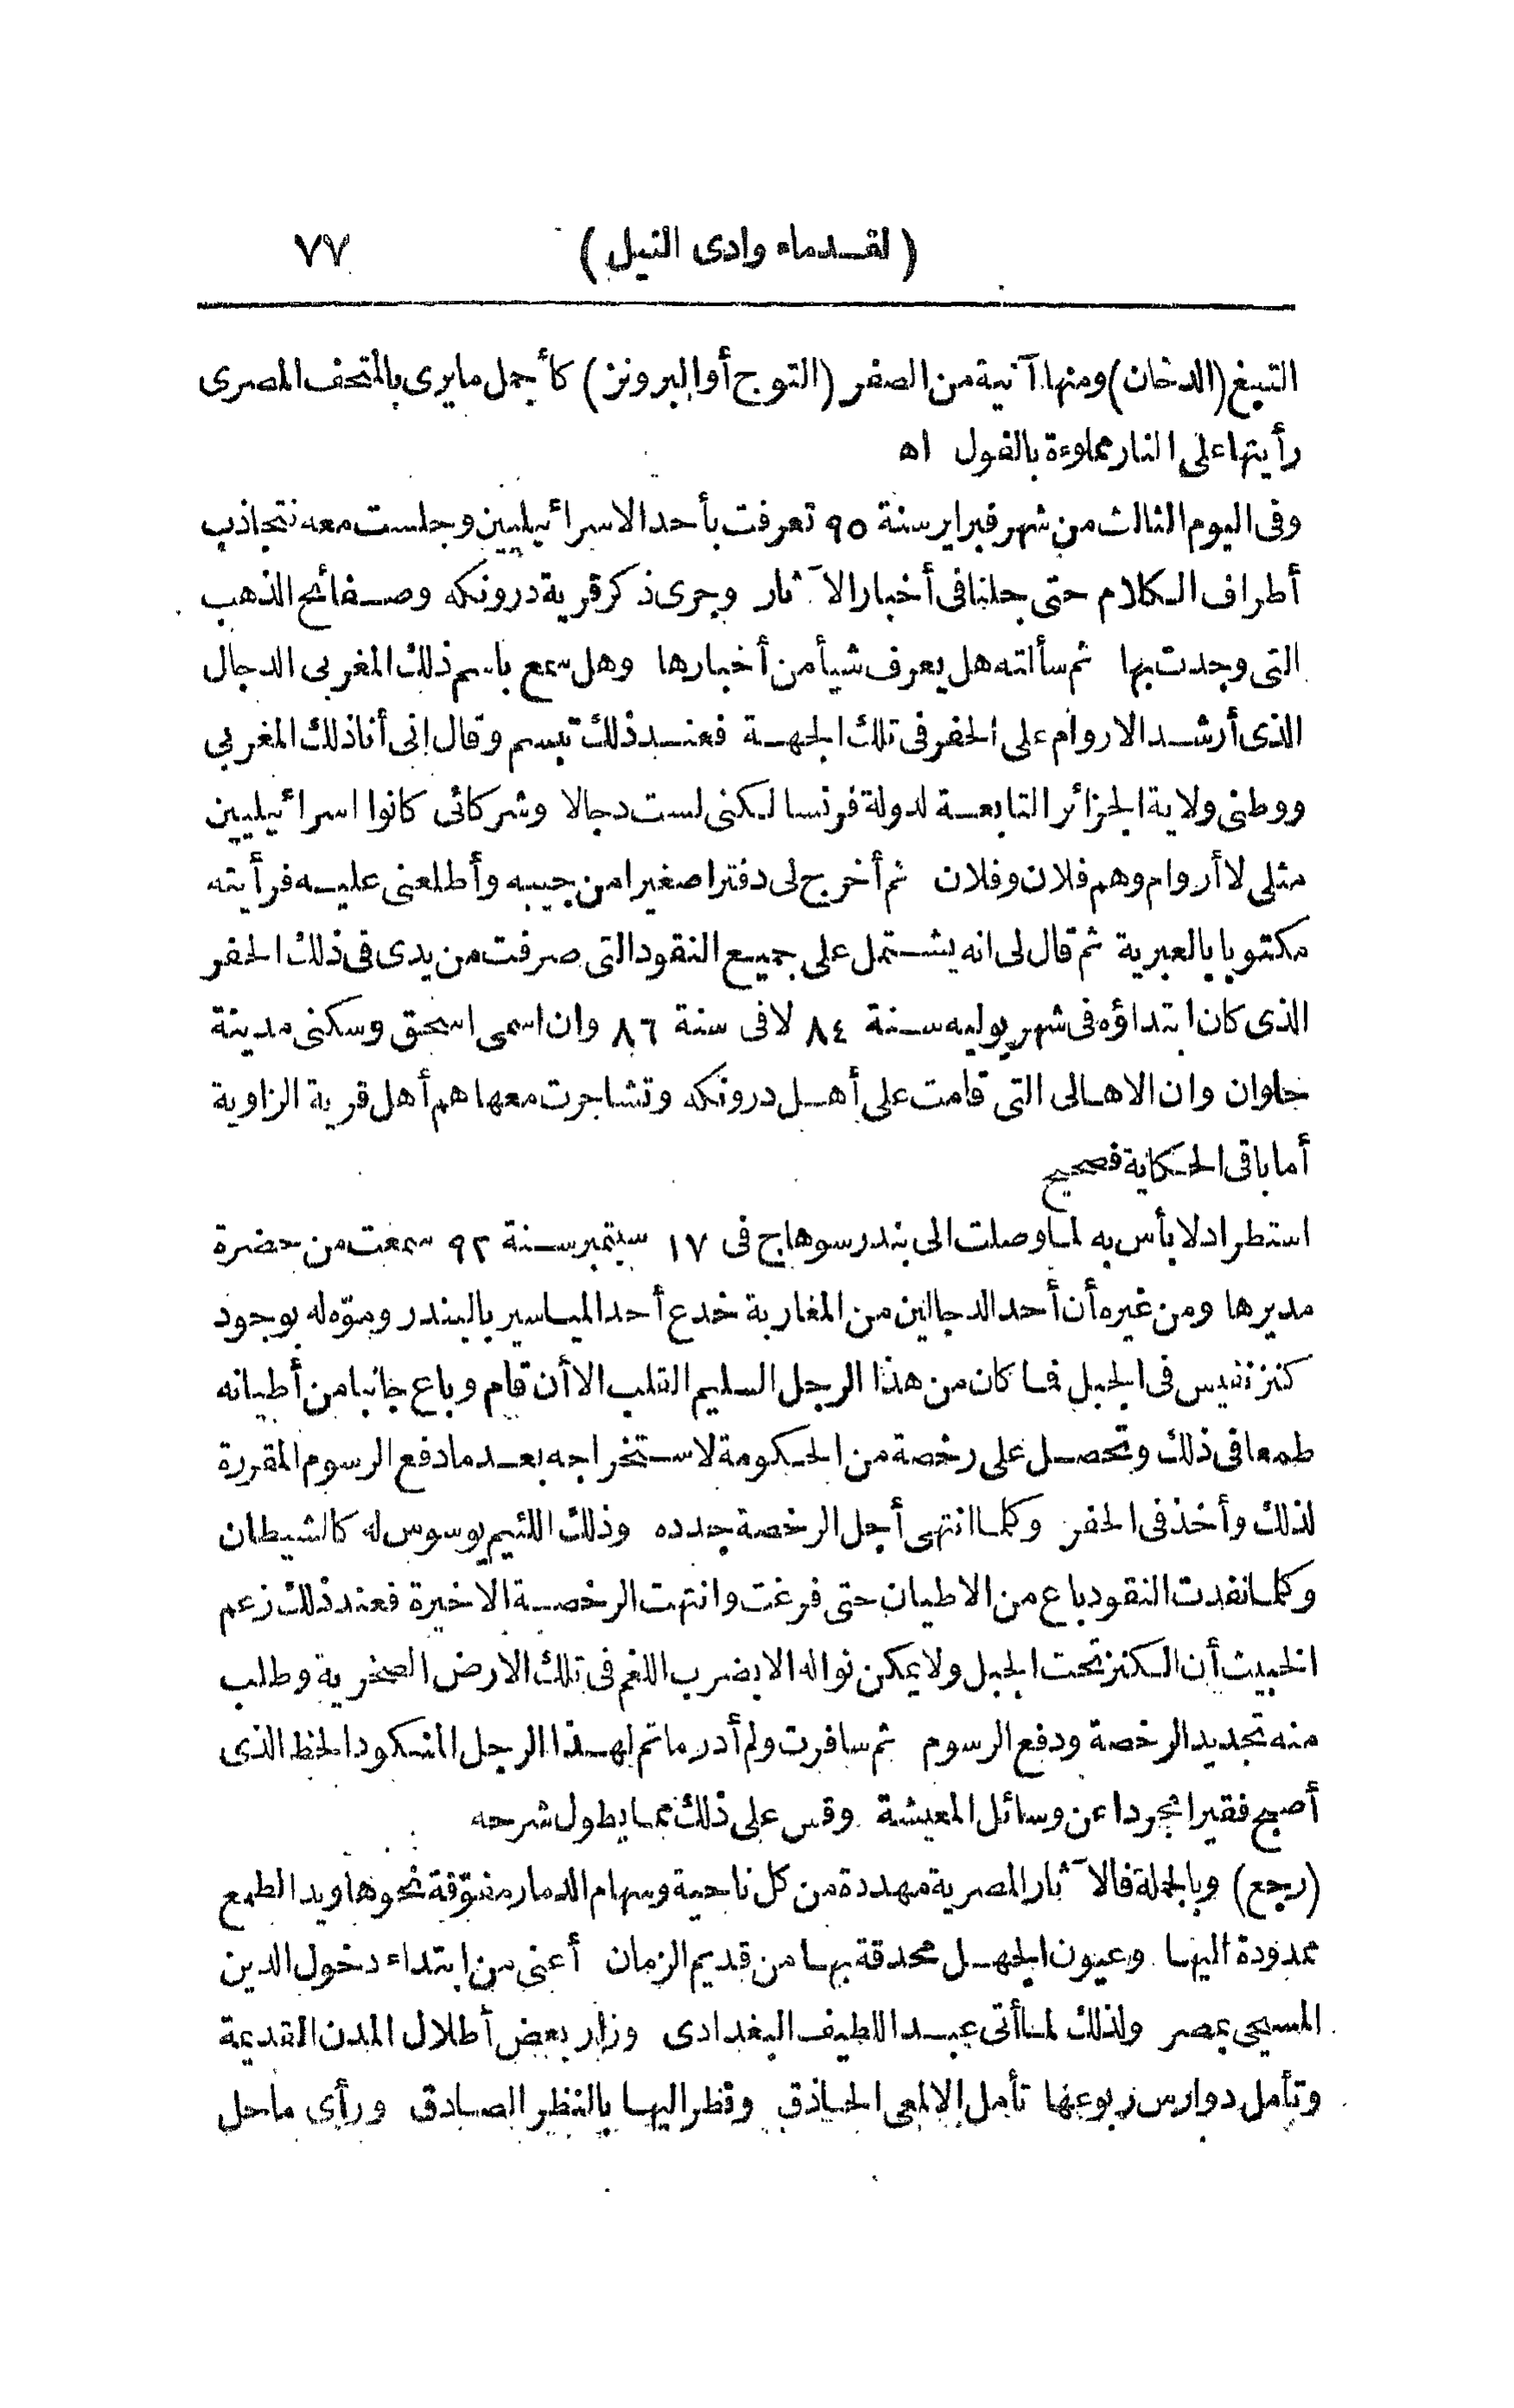 (لقدماء وادى النيل) ٧٧
التبغ (الدخان) ومنها آنية من الصفر (التوج أو البرونز) كأجمل ما يرى بالمتحف المصرى
رأيتها على النار مملوءة بالفول اه
وفى اليوم الثالث من شهر فبراير سنة ٩٥ تعرفت بأحد الاسرائيليين وجلست معه نتجاذب
أطراف الكلام حتى جلنا فى أخبار الآثار وجرى ذكر قرية درونكه وصفائح الذهب
التى وجدت بها ثم سألته هل يعرف شيأ من أخبارها وهل سمع باسم ذلك المغربى الدجال
الذى أرشد الاروام على الحفر فى تلك الجهة فعند ذلك تبسم وقال انى أنا ذلك المغربى
ووطنى ولاية الجزائر التابعة لدولة فرنسا لكنى لست دجالا وشركائى كانوا اسرائيليين
مثلى لا أروام وهم فلان وفلان ثم أخرج لى دفترا صغيرا من جيبه وأطلعنى عليه فرأيته
مكتوبا بالعبرية ثم قال لى انه يشتمل على جميع النقود التى صرفت من يدى فى ذلك الحفر
الذى كان ابتداؤه فى شهر يوليه سنة ٨٤ لا فى سنة ٨٦ وان اسمى اسحق وسكنى مدينة
حلوان وان الاهالى التى قامت على أهل درونكه وتشاجرت معها هم أهل قرية الزاوية
أما باقى الحكاية فصحيح
استطراد لا بأس به لما وصلت الى بندر سوهاج فى ١٧ سبتمبر سنة ٩٢ سمعت من حضرة
مديرها ومن غيره أن أحد الدجالين من المغاربة خدع أحد المياسير بالبندر وموّه له بوجود
كنز نفيس فى الجبل فما كان من هذا الرجل السليم القلب الا أن قام وباع جانبا من أطيانه
طمعا فى ذلك وتحصل على رخصة من الحكومة لاستخراجه بعد ما دفع الرسوم المقررة
لذلك وأخذ فى الحفر وكلما انتهى أجل الرخصة جدده وذلك اللئيم يوسوس له كالشيطان
وكلما نفدت النقود باع من الاطيان حتى فرغت وانتهت الرخصة الاخيرة فعند ذلك زعم
الخبيث أن الكنز تحت الجبل ولا يمكن نواله الا بضرب اللغم فى تلك الارض الصخرية وطلب
منه تجديد الرخصة ودفع الرسوم ثم سافرت ولم أدر ما تم لهذا الرجل المنكود الحظ الذى
أصبح فقيرا مجردا عن وسائل المعيشة وقس على ذلك مما يطول شرحه
(رجع) وبالجملة فالآثار المصرية مهددة من كل ناحية وسهام الدمار مفوّقة نحوها ويد الطمع
ممدودة اليها وعيون الجهل محدقة بها من قديم الزمان أعنى من ابتداء دخول الدين
المسيحى بمصر ولذلك لما أتى عبد اللطيف البغدادى وزار بعض أطلال المدن القديمة
وتأمل دوارس ربوعها تأمل الالمعى الحاذق ونظر اليها بالنظر الصادق ورأى ما حل